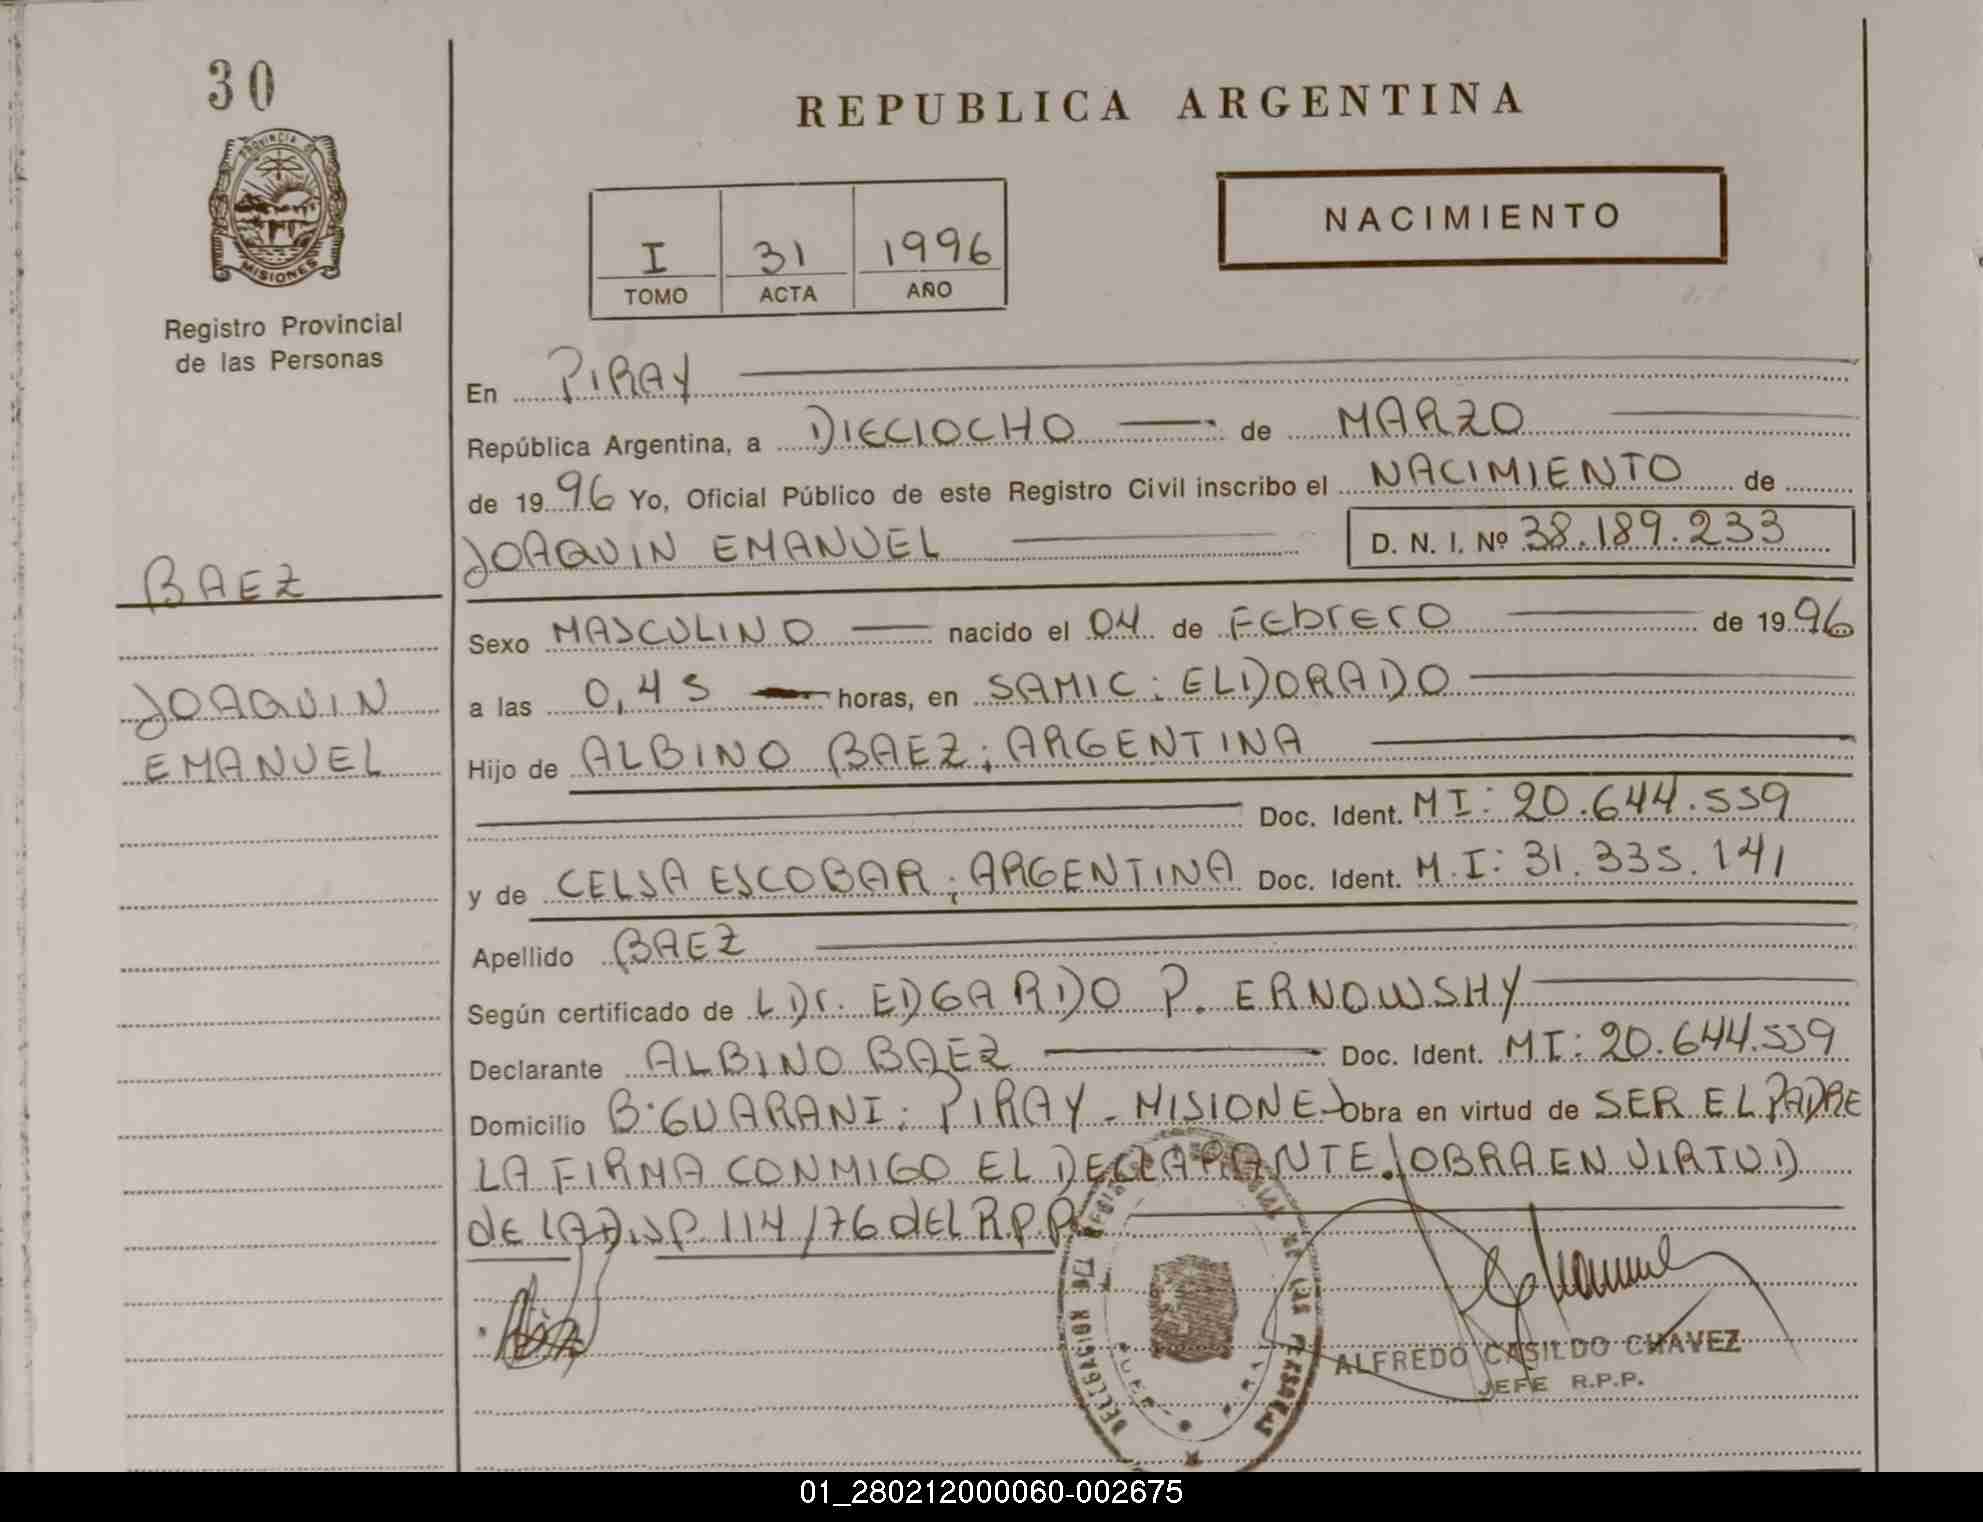 30
PROVINCIA DE
MISIONES
Registro Provincial
de las Personas
REPUBLICA ARGENTINA
I 31 1996
TOMO ACTA AÑO
NACIMIENTO
En PIRAY
República Argentina, a DIECIOCHO de MARZO
de 1996 Yo, Oficial Público de este Registro Civil inscribo el NACIMIENTO de
JOAQUIN EMANUEL D. N. I. Nº 38.189.233
BAEZ
JOAQUIN
EMANUEL
Sexo MASCULINO nacido el 04 de FEbrErO de 1996
a las 0,45 horas, en SAMIC: ELDORADO
Hijo de ALBINO BAEZ; ARGENTINA
Doc. Ident. MI: 20.644.559
y de CELSA ESCOBAR; ARGENTINA Doc. Ident. M.I: 31.335.141
Apellido BAEZ
Según certificado de L Dr. EDGARDO P. ERNOWSHY
Declarante ALBINO BAEZ Doc. Ident. MI: 20.644.559
Domicilio B: GUARANI: PIRAY - MISIONES obra en virtud de SER EL PADRE
LA FIRMA CONMIGO EL DECLARANTE. OBRA EN VIRTUD
dE LA DISP. 114/76 dEL R.P.P
DELEGACION DEL REGISTRO PROVINCIAL DE LAS PERSONAS
ALFREDO CASILDO CHAVEZ
JEFE R.P.P.
01_280212000060-002675